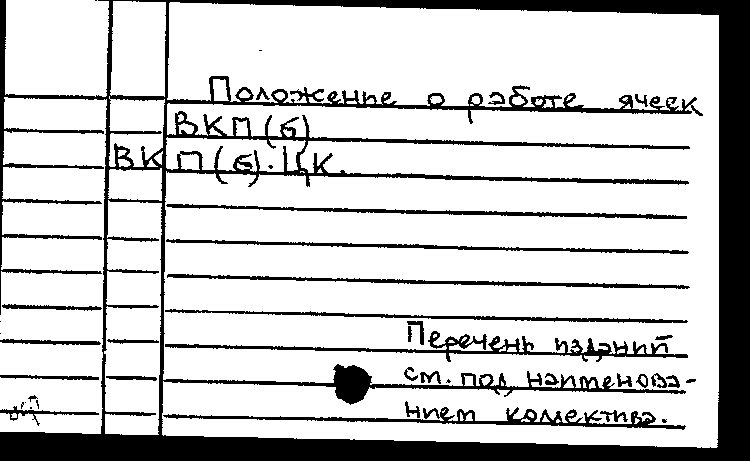 Положение о работе ячеек
ВКП(б)
ВКП(б). ЦК.
Перечень изданий
см. под наименова-
нием коллектива.